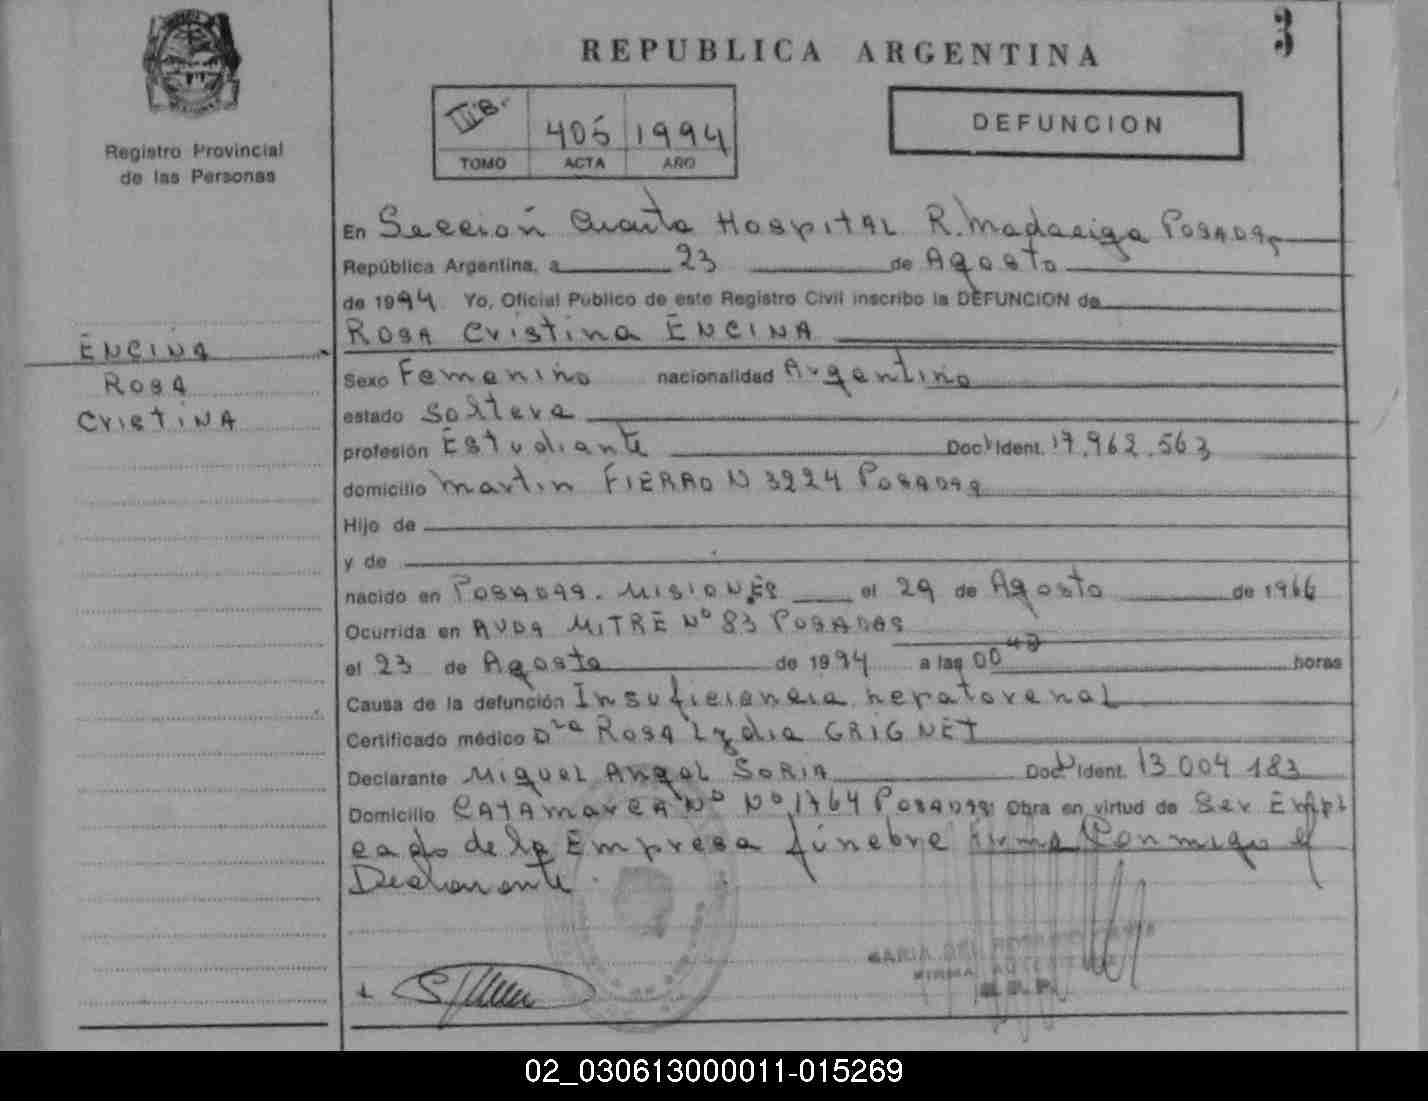 3
REPUBLICA ARGENTINA
Registro Provincial
de las Personas
III B.
405 1994
TOMO ACTA AÑO
DEFUNCION
En Sección Cuarta Hospital R. Madariaga Posadas
República Argentina, a 23 de Agosto
de 1994. Yo, Oficial Público de este Registro Civil inscribo la DEFUNCION de
ROSA Cristina ENCINA
ENCINA
ROSA
CristiNA
Sexo Femenino nacionalidad Argentino
estado soltera
profesión Estudiante Doc. Ident. 17.962.563
domicilio Martin FIERRO N 3224 Posadas
Hijo de
y de
nacido en Posadas. Misiones el 29 de Agosto de 1966
Ocurrida en AVDA MITRE Nº 83 POSADAS
el 23 de Agosto de 1994 a las 00 horas
Causa de la defunción Insuficiencia hepatorenal
Certificado médico Dra Rosa Lydia GRIGNET
Declarante Miguel Angel SORIA Doc. Ident. 13 004 183
Domicilio CATAmarca Nº Nº 1764 Posadas Obra en virtud de Ser Empl
eado de la Empresa fúnebre firma Conmigo el
Declarante.
02_030613000011-015269